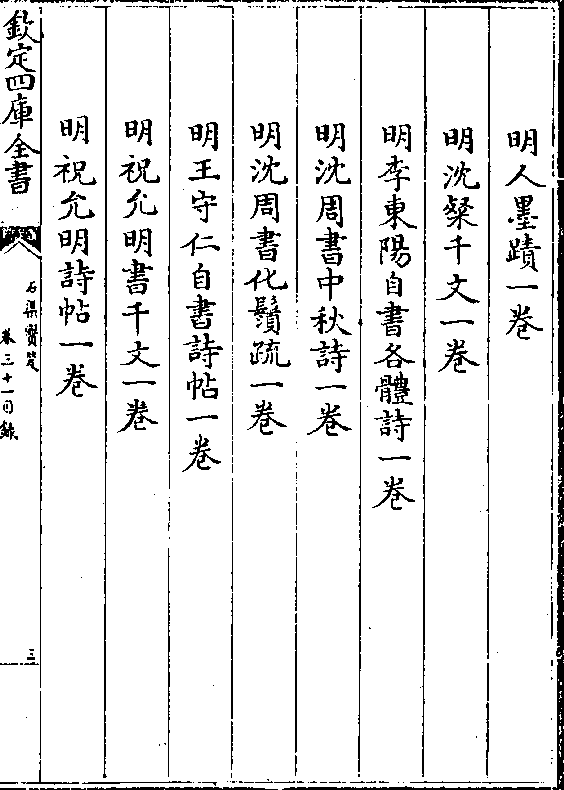 明人墨蹟一卷
明沈粲千文一卷
明李東陽自書各體詩一卷
明沈周書中秋詩一卷
明沈周書化鬚疏一卷
明王守仁自書詩帖一卷
明祝允明書千文一卷
明祝允明詩帖一卷
欽定四庫全書
石渠寳笈
卷三十一目錄
三